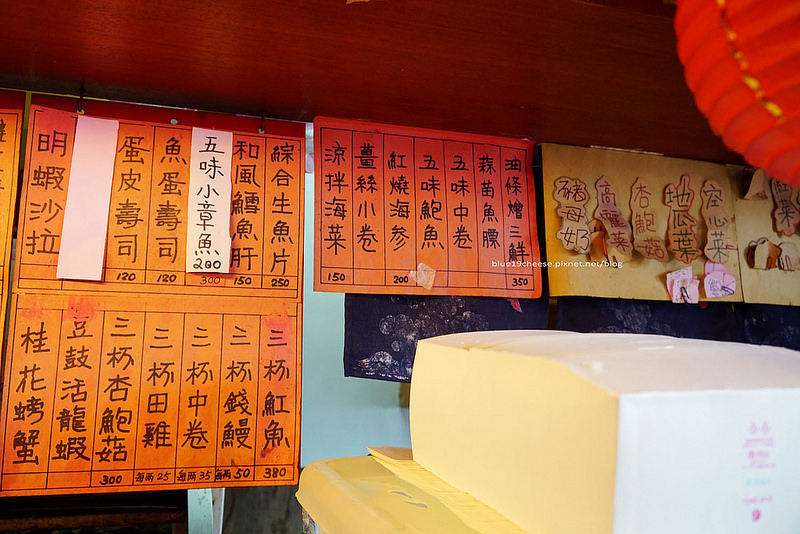 綜合生魚片 250
和風鱈魚肝 150
五味小章魚 200
300
魚蛋壽司 120
蛋皮壽司 120
明蝦沙拉
三杯魟魚 380
三杯錢鰻 每兩 50
三杯中卷 每兩 35
三杯田雞 每兩 25
三杯杏鮑菇 300
豆鼓活龍蝦
桂花螃蟹
油條燴三鮮 350
蒜苗魚膘
五味中卷
五味鮑魚
紅燒海參 200
薑絲小卷
涼拌海菜 150
空心菜
地瓜葉
杏鮑菇
高麗菜
豬母奶
blue19cheese.pixnet.net/blog